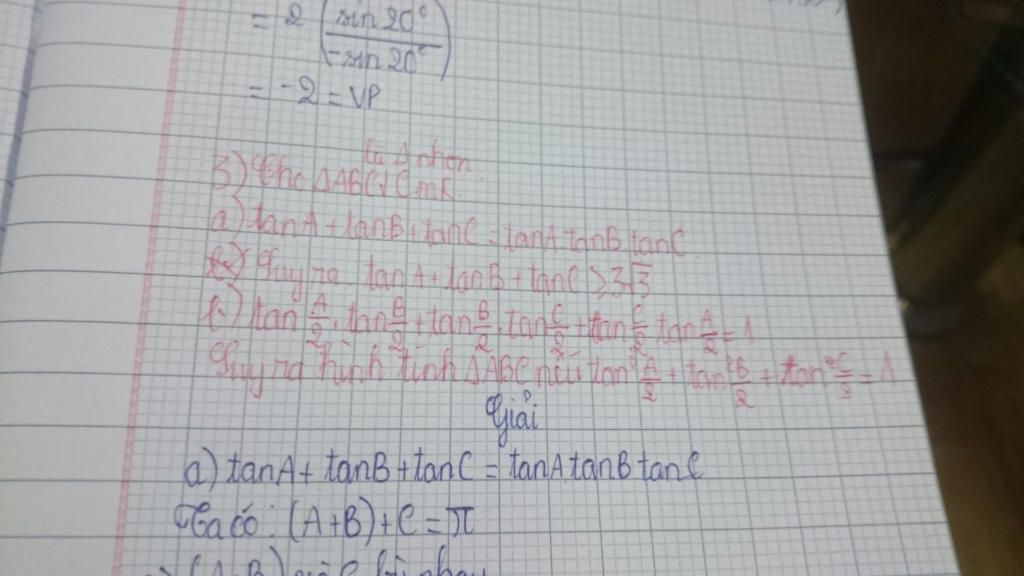 = 2 (sin 20° / -sin 20°)
= -2 = VP
3) Cho ΔABC có 3 nhọn. CmR:
a) tanA + tanB + tanC = tanA.tanB.tanC
Suy ra tanA + tanB + tanC ≥ 3√3
b) tan A/2 . tan B/2 + tan B/2 . tan C/2 + tan C/2 tan A/2 = 1
Suy ra hình tính ΔABC nếu tan² A/2 + tan² B/2 + tan² C/2 = 1
Giải
a) tanA + tanB + tanC = tanA.tanB tanC
Ta có: (A+B) + C = π